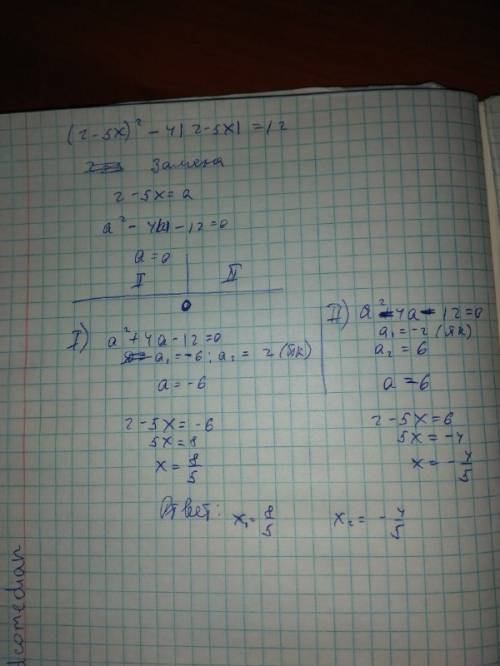 (2-5x)² - 4|2-5x| = 12
Замена
2-5x = a
a² - 4|a| - 12 = 0
a = 0
I II
0
I) a² + 4a - 12 = 0
a₁ = -6; a₂ = 2 (пк)
a = -6
2-5x = -6
5x = 8
x = 8/5
II) a² - 4a - 12 = 0
a₁ = -2 (пк)
a₂ = 6
a = 6
2-5x = 6
5x = -4
x = -4/5
Ответ: x₁ = 8/5 x₂ = -4/5
comedian